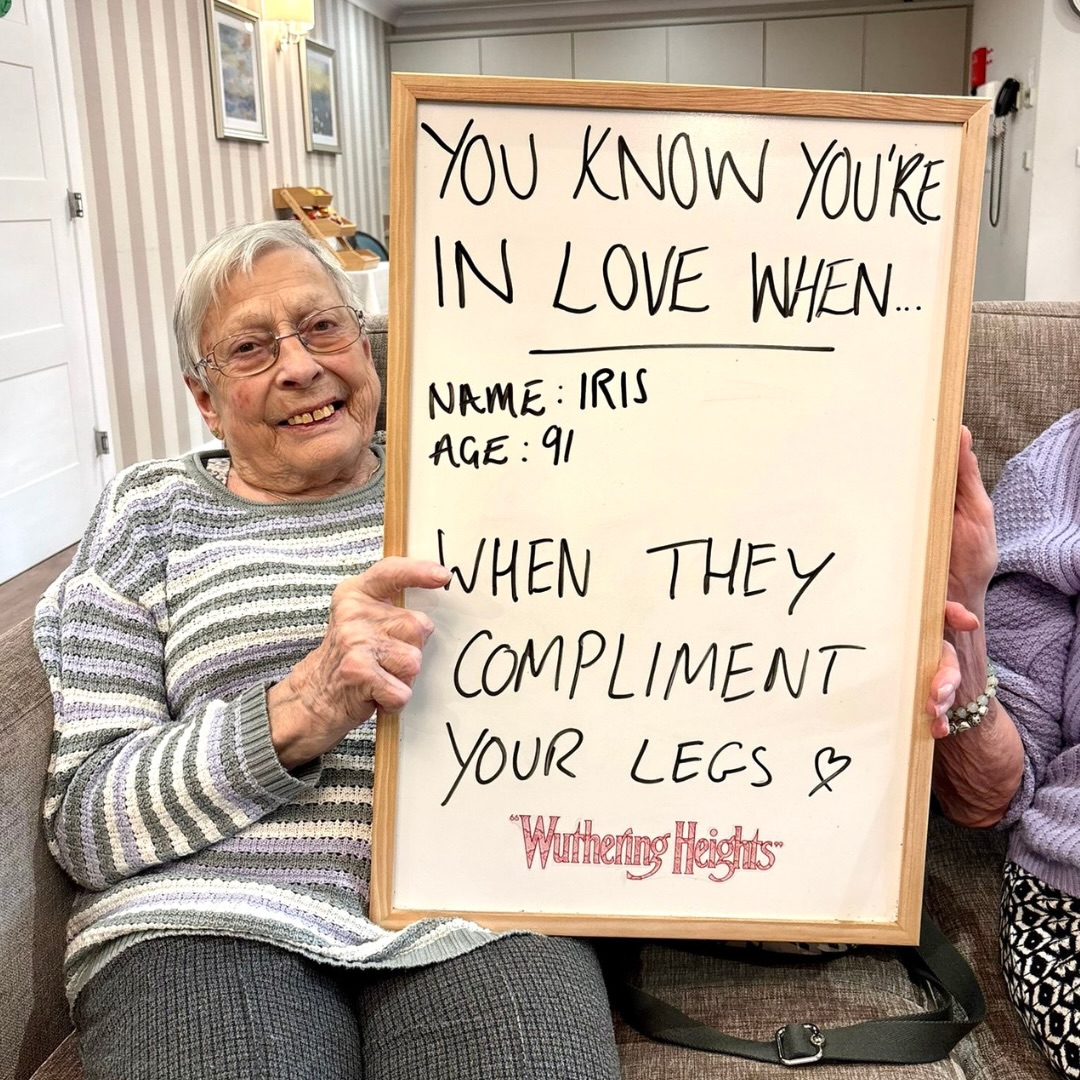 YOU KNOW YOU'RE
IN LOVE WHEN...
NAME: IRIS
AGE: 91
WHEN THEY
COMPLIMENT
YOUR LEGS ♡
"Wuthering Heights"